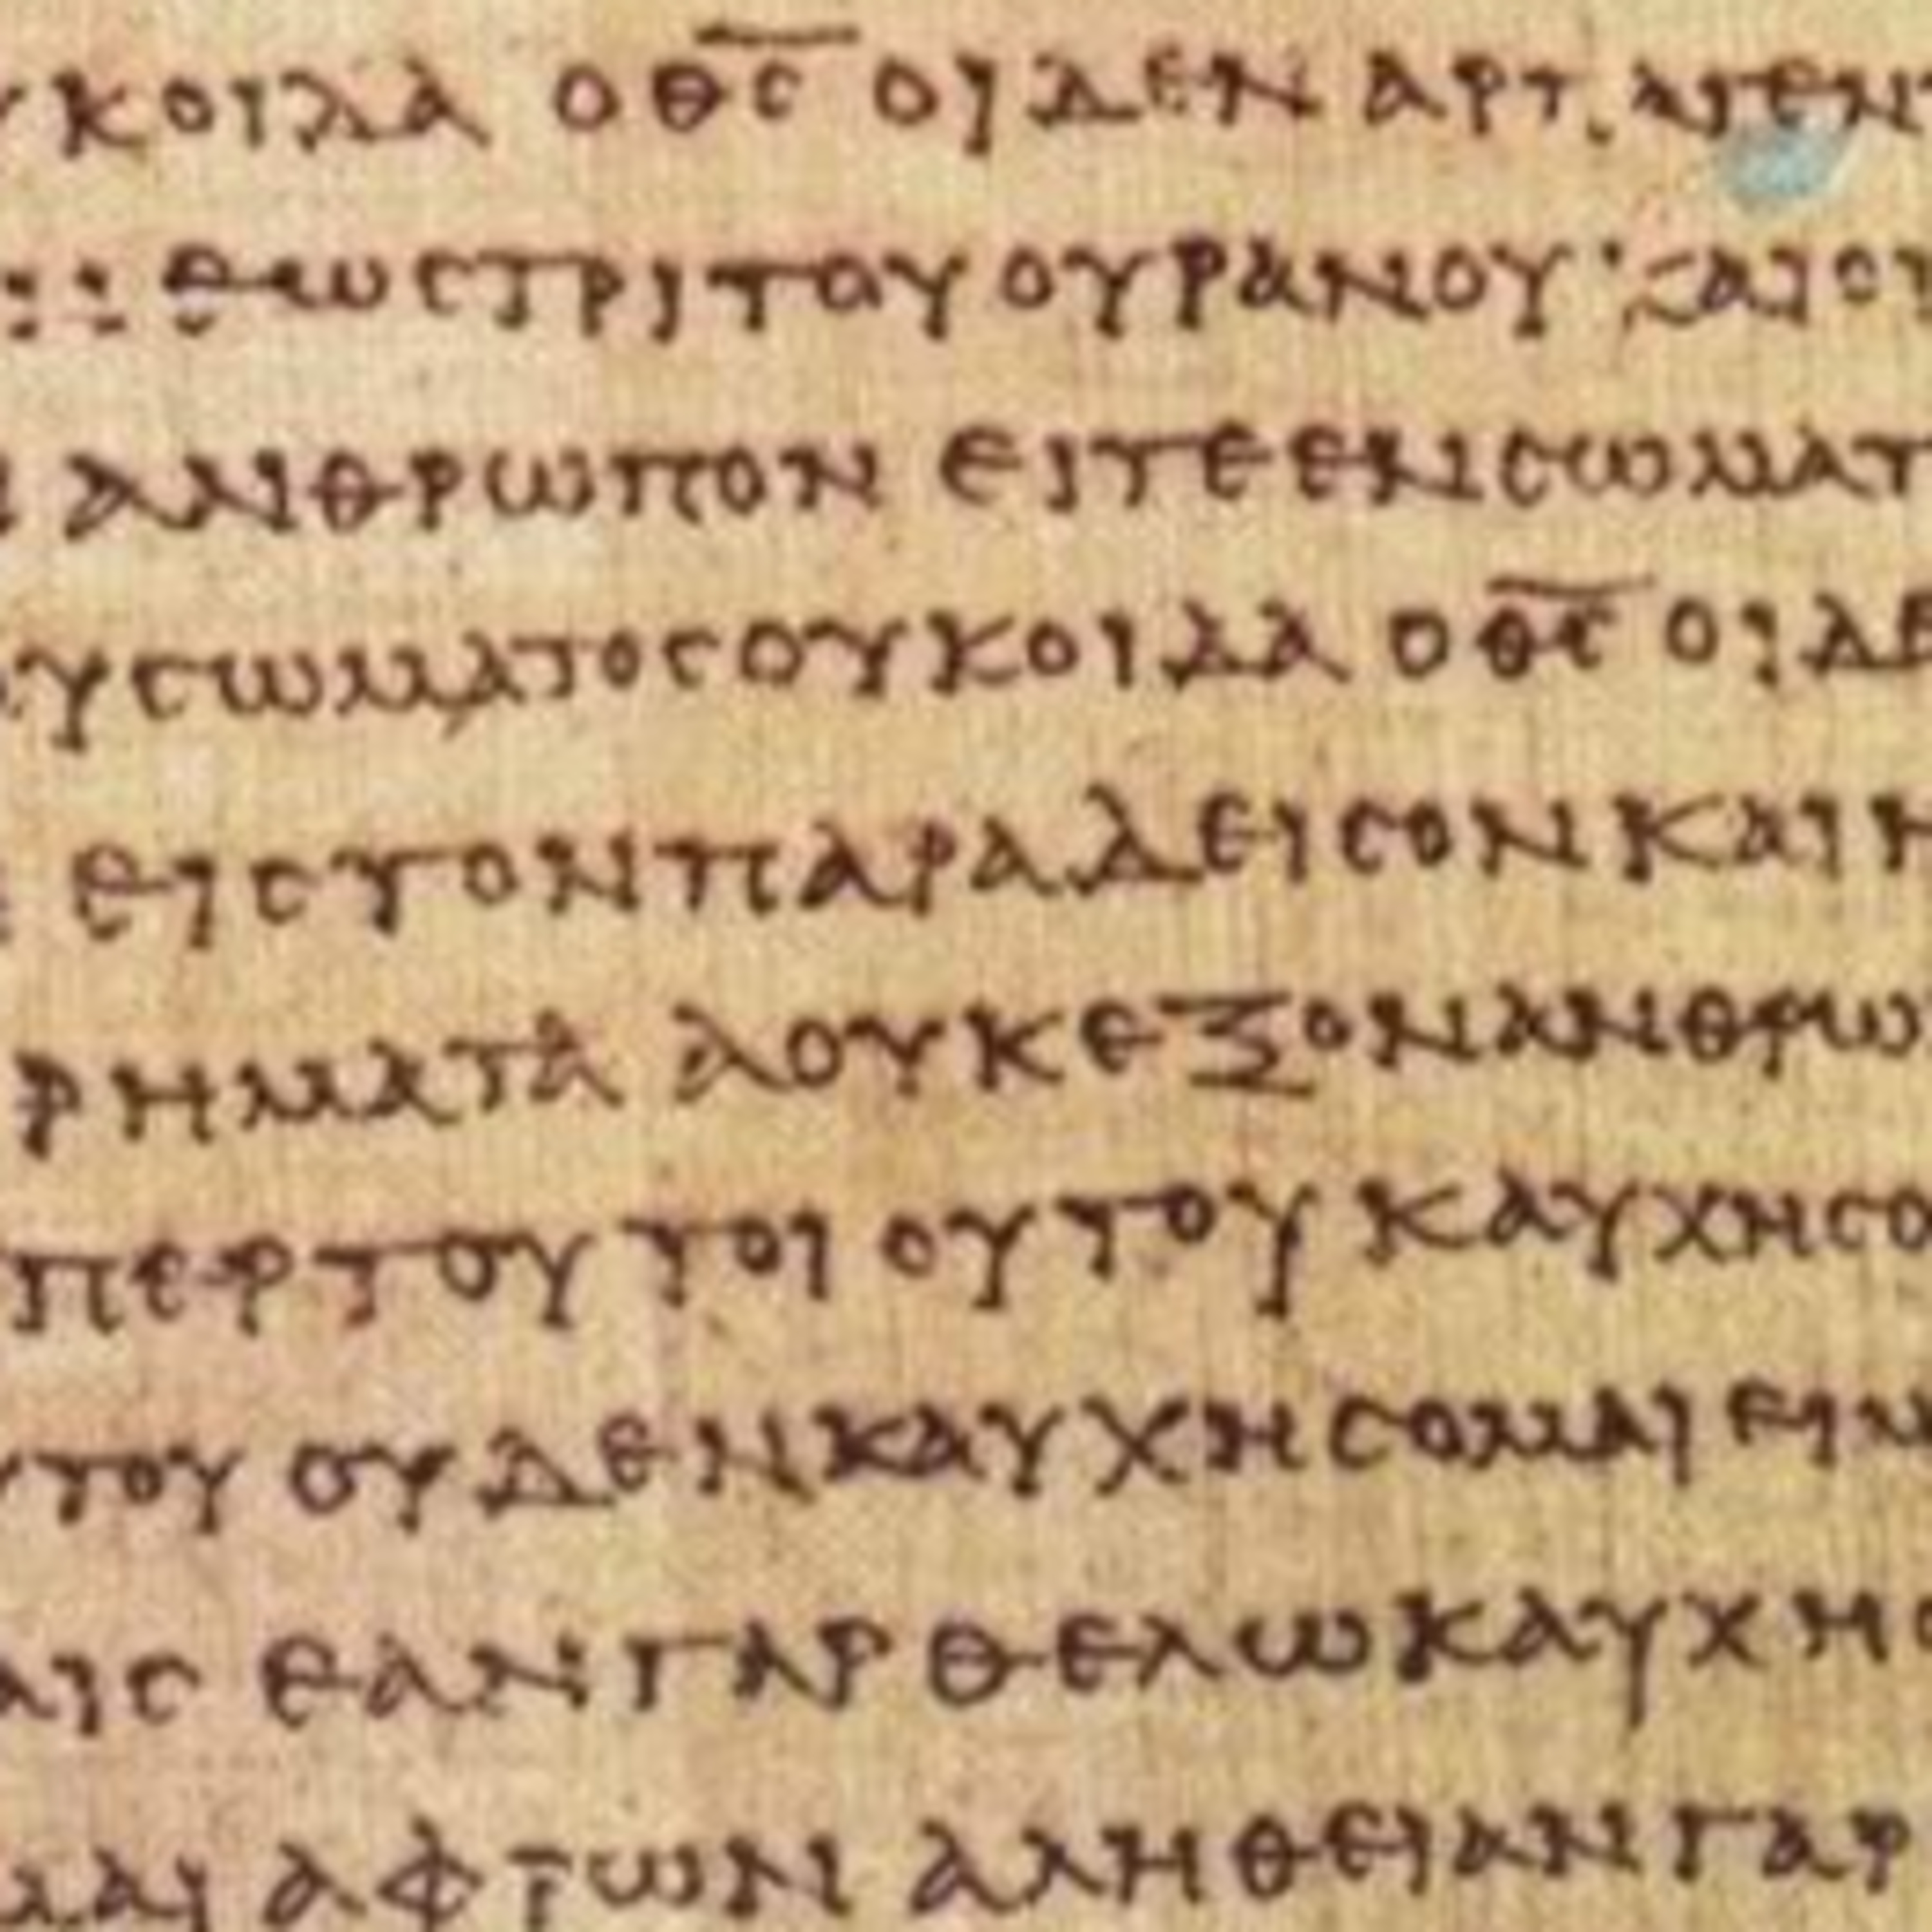 υκοιδα ο θ̅ς̅ οιδεν αρπ
εως τριτου ουρανου και ου
ανθρωπον ειτε εν σωματ
υ σωματος ουκ οιδα ο θ̅ς̅ οιδε
εις τον παραδεισον και η
ρηματα α ουκ εξον ανθρω
περ του τοιουτου καυχησο
υτου ουδεν καυχησομαι ει μ
αις εαν γαρ θελω καυχησ
μαι αφρων αληθειαν γαρ